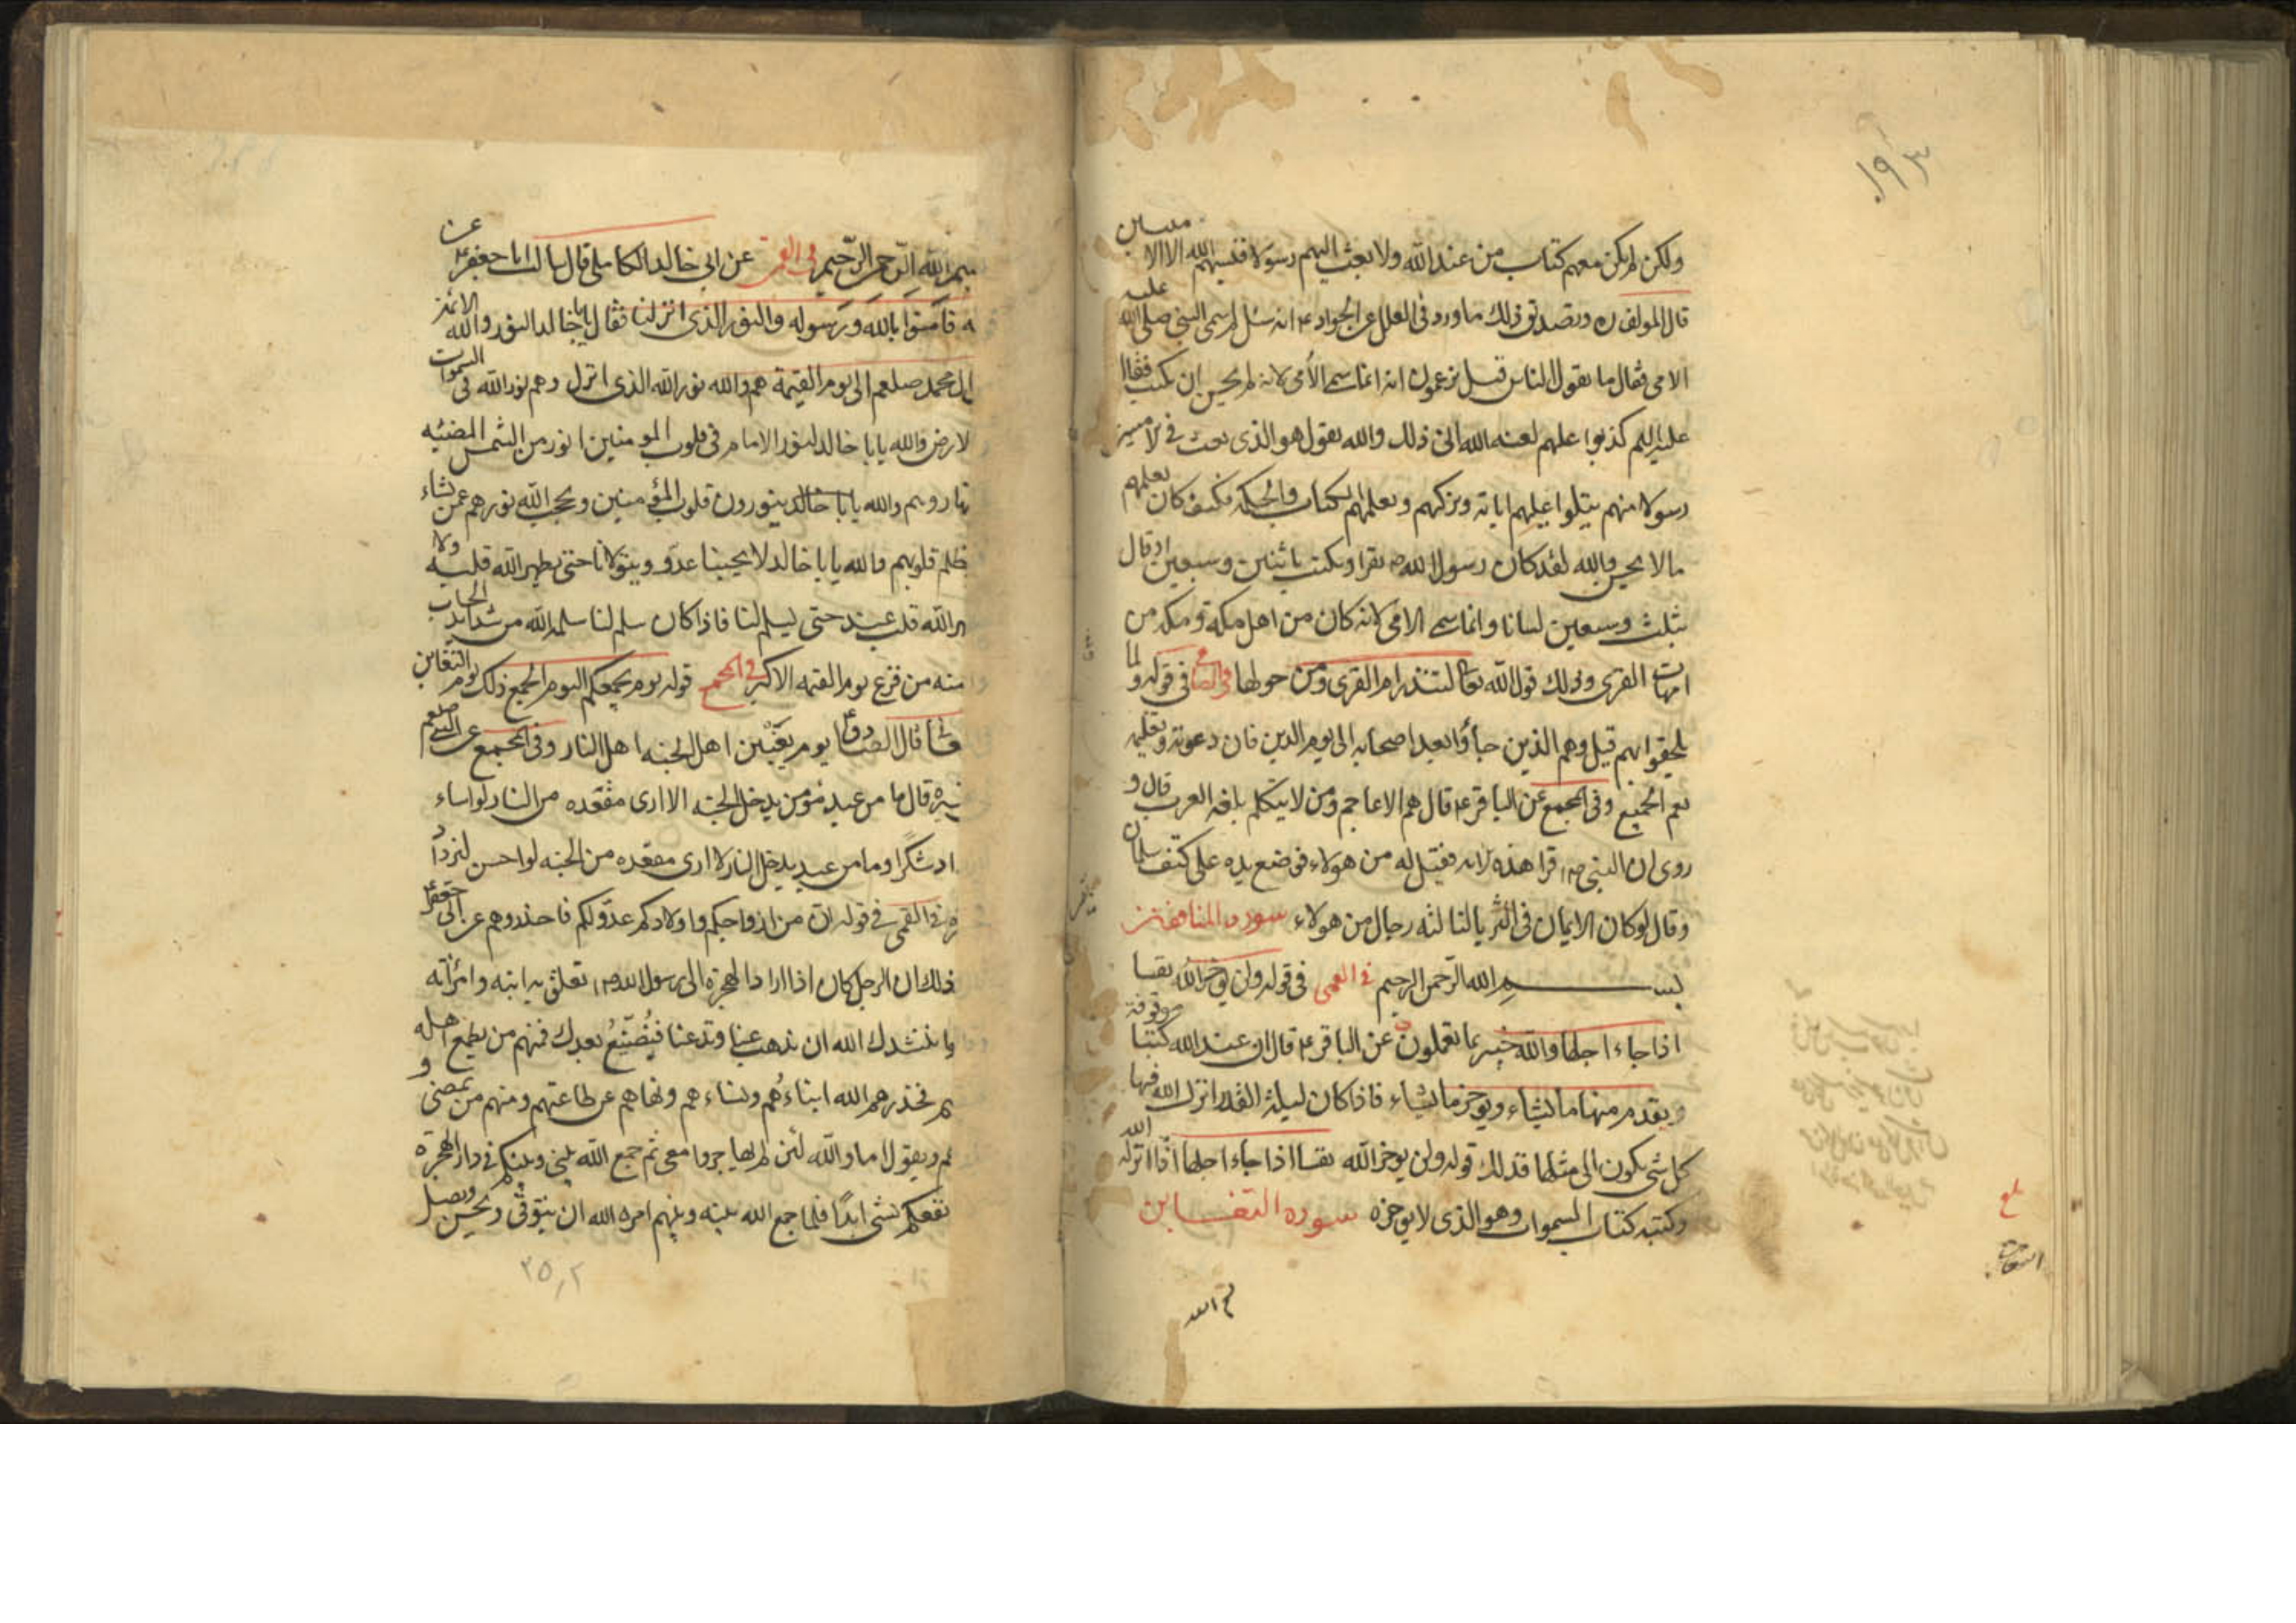 ١٩٣
ولكن لم يكن معهم كتاب من عند الله ولا بعث اليهم رسولا فنسبهم الله الا الا ميين
قال المولف ره وتصديق ذلك ما ورد في العلل عن الجواد ع انه سئل لم سمى النبي صلى الله عليه
الامى فقال ما يقول الناس قيل يزعمون انه انما سمى الأمى لانه لم يحسن ان يكتب فقال
عليه السلم كذبوا عليهم لعنه الله انى ذلك والله يقول هو الذى بعث فى الاميين
رسولا منهم يتلوا عليهم اياته ويزكيهم ويعلمهم الكتاب والحكمة فكيف كان يعلمهم
ما لا يحسن والله لقد كان رسول الله ص يقرا ويكتب باثنين وسبعين او قال
بثلث وسبعين لسانا وانما سمى الامى لانه كان من اهل مكة ومكه من
امهات القرى وذلك قول الله تعا لتنذر ام القرى ومن حولها فى قوله ولما
يلحقوا بهم قيل وهم الذين جاؤا بعد اصحابه الى يوم الدين فان دعوته وتعليمه
يعم الجميع وفى المجمع عن الباقر ع قال هم الاعاجم ومن لا يتكلم بلغه العرب قال و
روى ان النبى ص قرا هذه الايه فقيل له من هولاء فوضع يده على كتف سلمان
وقال لو كان الايمان فى الثريا لنا لته رجال من هولاء سوره المنافقين
بسم الله الرحمن الرحيم فى القمى فى قوله ولن يوخر الله نفسا
اذا جاء اجلها والله خبير بما تعملون عن الباقر ع قال ان عند الله كتبا موقوفة
ويقدم منها ما يشاء ويوخر ما يشاء فاذا كان ليلة القدر انزل الله فيها
كل شى يكون الى مثلها فذلك قوله ولن يوخر الله نفسا اذا جاء اجلها اذا انزله الله
وكتبه كتاب السموات وهو الذى لا يوخره سوره التغابن
بسم الله
بسم الله الرحمن الرحيم فى القمى عن ابي خالد الكابلى قال سالت ابا جعفر ع عن
فآمنوا بالله ورسوله والنور الذى انزلنا فقال يا با خالد النور والله الائمة
ال محمد صلعم الى يوم القيمة هم والله نور الله الذى انزل وهم نور الله فى السموات
لارض والله يا با خالد لنور الامام فى قلوب المومنين انور من الشمس المضيئه
نهار وهم والله يا با خالد ينورون قلوب المؤمنين ويحجب الله نورهم عمن يشاء
ظلم قلوبهم والله يا با خالد لا يحبنا عبد ويتولانا حتى يطهر الله قلبه ولا
ر الله قلب عبد حتى يسلم لنا فاذا كان سلم لنا سلمه الله من شدايد الحساب
منه من فزع يوم القيمه الاكبر فى المجمع قوله يوم يجمعكم ليوم الجمع ذلك يوم التغابن
قال الصادق ع يوم يغبن اهل الجنه اهل النار وفى المجمع عن النبى صلعم
قال ما من عبد مؤمن يدخل الجنه الا ارى مقعده من النار لو اساء
اد شكرا وما من عبد يدخل النار الا ارى مقعده من الجنه لو احسن ليزداد
فى القمى فى قوله ان من ازواجكم واولادكم عدوا لكم فاحذروهم عن ابى جعفر ع
ذلك ان الرجل كان اذا اراد الهجرة الى رسول الله ص تعلق به ابنه وامرأته
وا ننشدك الله ان تذهب عنا وتدعنا فنُضَيّعُ بعدك فمنهم من يطيع اهله
م فحذرهم الله ابناءهُم ونساءهم ونهاهم عن طاعتهم ومنهم من يمضى و
هم ويقول اما والله لئن لم تهاجروا معى ثم جمع الله بينى وبينكم فى دار الهجرة
نفعكم بشى ابدًا فلما جمع الله بينه وبينهم امره الله ان يتوقى ويحسن ويصل